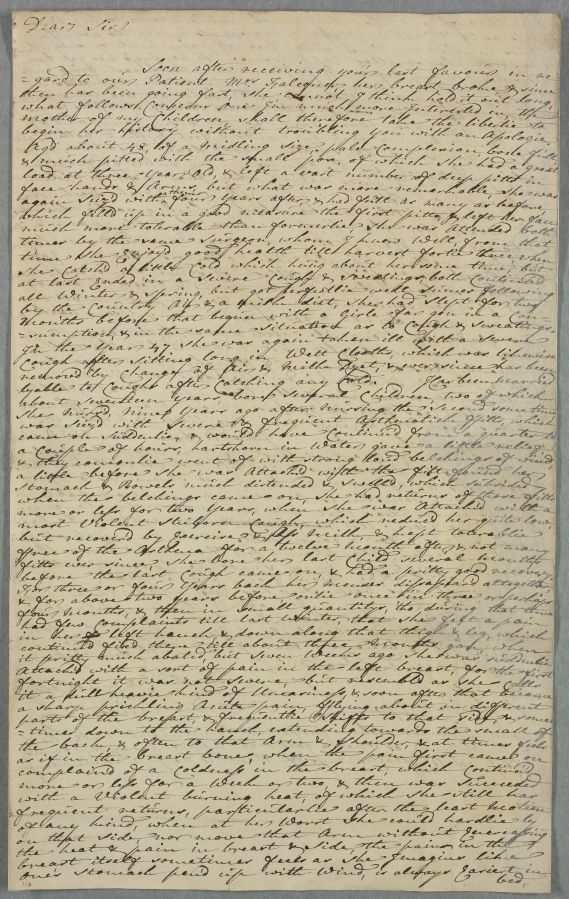 Dear Sir
Soon after receiving yours last favour in re
=gard to our Patient Mrs her breast broke & since
then has been going fast, she cannot I think hold it out long,
what follows concerns one I'm much more Interested in, the
mother of my Children shall therefore take the libertie to
begin her history without troubling you with an Apologie
Aged about 48, of a midling size, pale Complexion, full
& much pitted with the small pox, of which she had a great
load at three years old, & left a vast number of deep pitts in
face hands & Arms, but what was more remarkable, she was
again Seized with four years after, & had full as many as before
which filled up in a good measure the first pitts, & left her face
much more tolerable than formerlie she was attended both
times by the same Surgeon, whom I knew well, from that
time she Enjoyed good health till harvest fortie three when
she Catch'd a little Cold which hung about her since time, but
at last ended in a Severe Cough & Sweatings both Continued
all Winter & Spring but got perfectlie well Summer following
by the Country Air & a milk diet, she had Slept for two
months before that began with a Girle in a Con
=sumption, & in the same situation as to Cough & Sweatings
In the year 47 she was again taken ill with a Severe
Cough after Sitting long in Wett Cloaths, which was likewise
removed by Change of Air & Milk Dyet, & ever since has been
lyable to Coughs after Catching any Cold. Has been married
about Seventeen years, born several Children, two of which
she nursed, nine years ago after nursing the second sometime
was Seized with Severe & frequent Asthmatick fitts, which
came on Suddenlie, & would have Continued from a quarter to
a Couple of hours, hartshorn in Water gave a little relief
& they commonlie went of with strong loud belchings of wind
a little before she was Attacked with the fitt found her
Stomach & Bowels much distended & Swelled, which subsided
when the belchings came on, she had returns of those fitts
more or less for two years, when she was Attacked with a
most Violent Stuborn Cough which reduced her quite low,
but recovered by Exercise & Ass Milk, & kept tolerablie
free of the Asthma for a twelve month after, & not many
fitts ever since, she bore her last Child several months
before the last Cough came on, & had a pretty good recovery.
For three or four years back her Menses dissapeared altogether,
& for above two years before onlie once in three or perhaps
four months, & then in small quantitys, tho during that time
had few Complaints till last winter, that she felt a pain
in her left hauch & down along that thigh & leg, which
continued fixed there till about three Months ago, when
it pritty much abated, but Seven weeks ago she was suddenlie
Attacked with a sort of pain in the left breast, for the first
fortnight it was not severe, but resembled as she called
it a full heavie kind of Uneasiness, & soon after that became
a sharp prickling Acute pain, flying about in different
parts of the breast, & frequentlie shifts to that side, & some
=times down to the hauch, extending towards the small of
the back, & often to that Arm & shoulder, & at times feels
as if in the breast bone, when the pain first came on
complained of a Coldness in the breast, which Continued
more or less for a Week or two, & then was Succeeded
with a Violent burning heat, of which she still has
frequent returns, particularlie after the least motion
of any kind, when at her Worst she could hardlie ly
on that side, nor move that Arm without Encreasing
the heat & pain in breast & side, the pain in the
breast itself sometimes feels as she Imagines like
one's stomach pend up with Wind, is always Easiest in
bed,